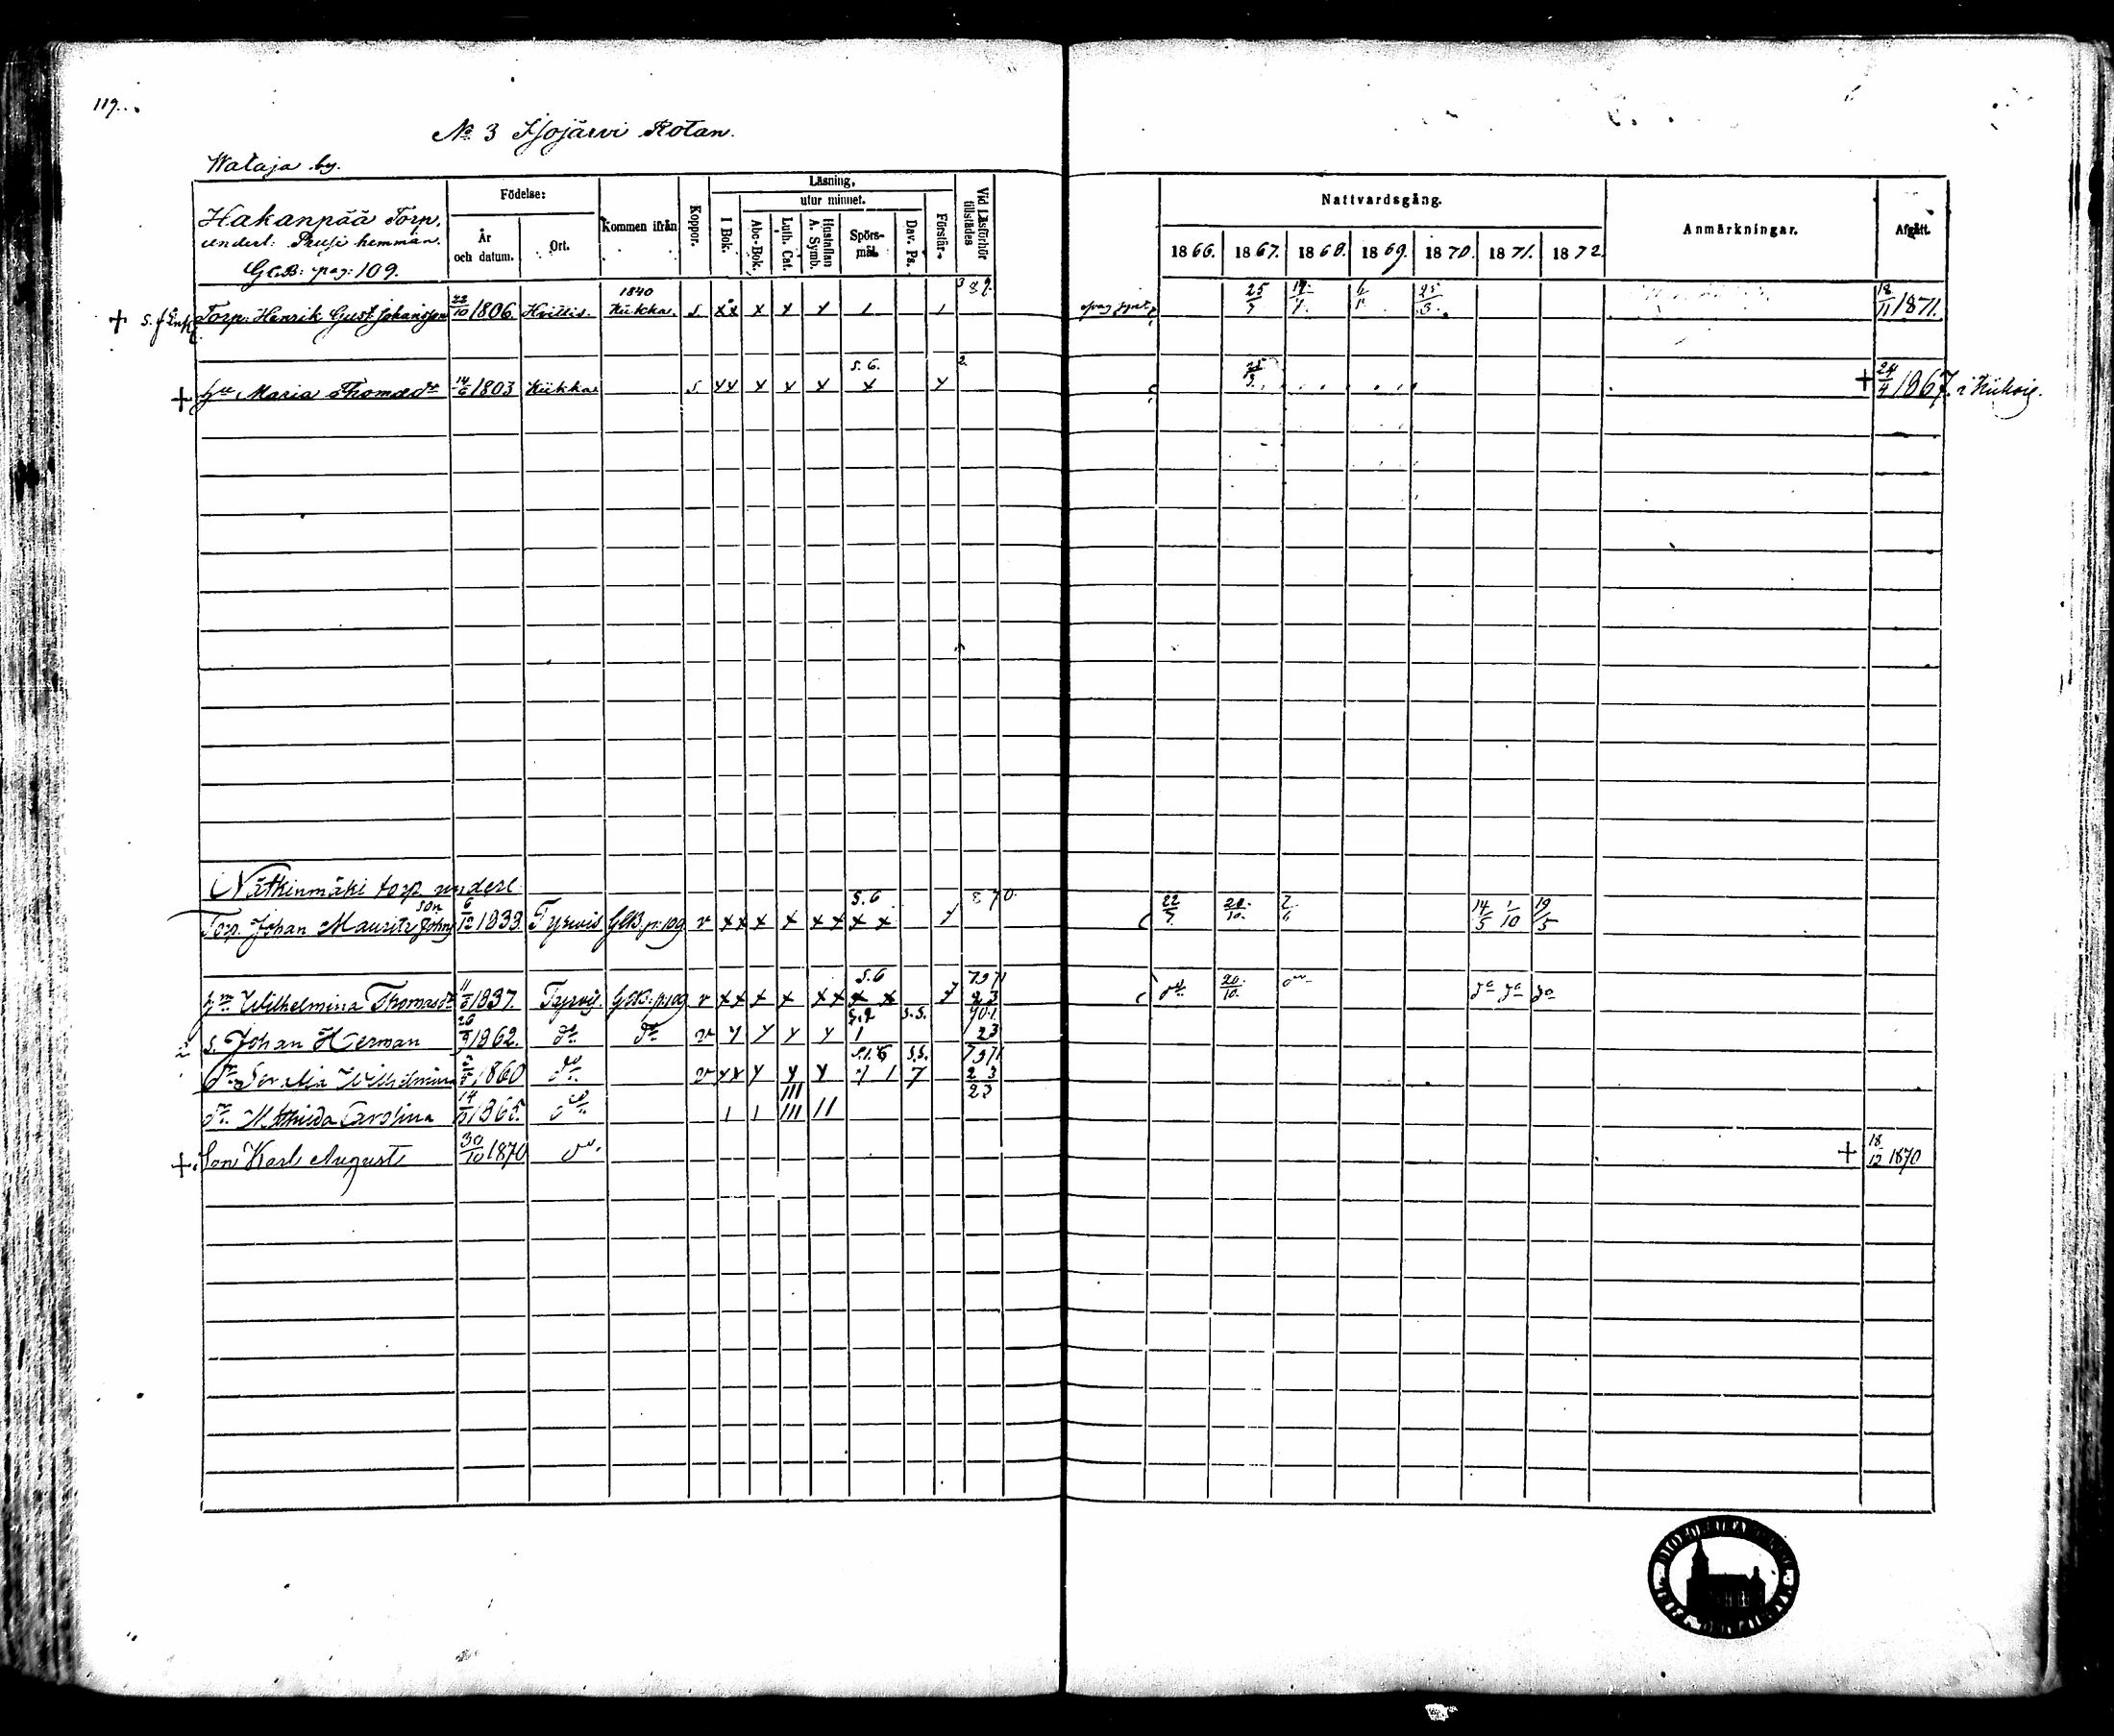 119.
No 3 Isojärvi Rotan.
Wataja by.
Hakanpää Torp,
underl: hemman.
GCB: pag: 109.
Födelse:
År och datum.
Ort.
Kommen ifrån
Koppor.
Läsning,
I Bok.
utur minnet.
Abc-Bok.
Luth. Cat.
Hustaflan A. Symb.
Spörs-mål.
Dav. Ps.
Förstår.
Vid Läsförhör tillstädes
Nattvardsgång.
1866. 1867. 1868. 1869. 1870. 1871. 1872.
Anmärkningar.
Afgått.
+ Torp. Henrik Gust. Johansson 22/10 1806. Hvittis. 1840 Kiikka. s xx x x x 1 1 25/3 25/3. 18/11 1871.
+ hu Maria Thomædr 14/6 1803 Kiikka s xx x x x s. 6. x x 2 + 24/4 1867. i
Nätkinmäki torp underl
Torp. Johan Mauritz Johnson 6/12 1833. Tyrvis GCB. p. 109 v xx x x xx s. 6 x x 870. 22/7. 20/10. 14/5 1/10 19/5
hu Wilhelmina Thomasdr 11/3 1837. Tyrvis. GCB: p. 109 v xx x x xx s. 6 x x 7 7971 23 do 20/10. do do do do
s. Johan Herman 26/9 1862. do do v x x x x s. 2 1 s.s. 23
dr Wilhelmina 1860 do v xx x x x 1 s.s. 7 7971 23
dr Mathilda Carolina 14/11 1865. do 1 1 III III II 23
+ Son Karl August 30/10 1870 do. + 18/12 1870